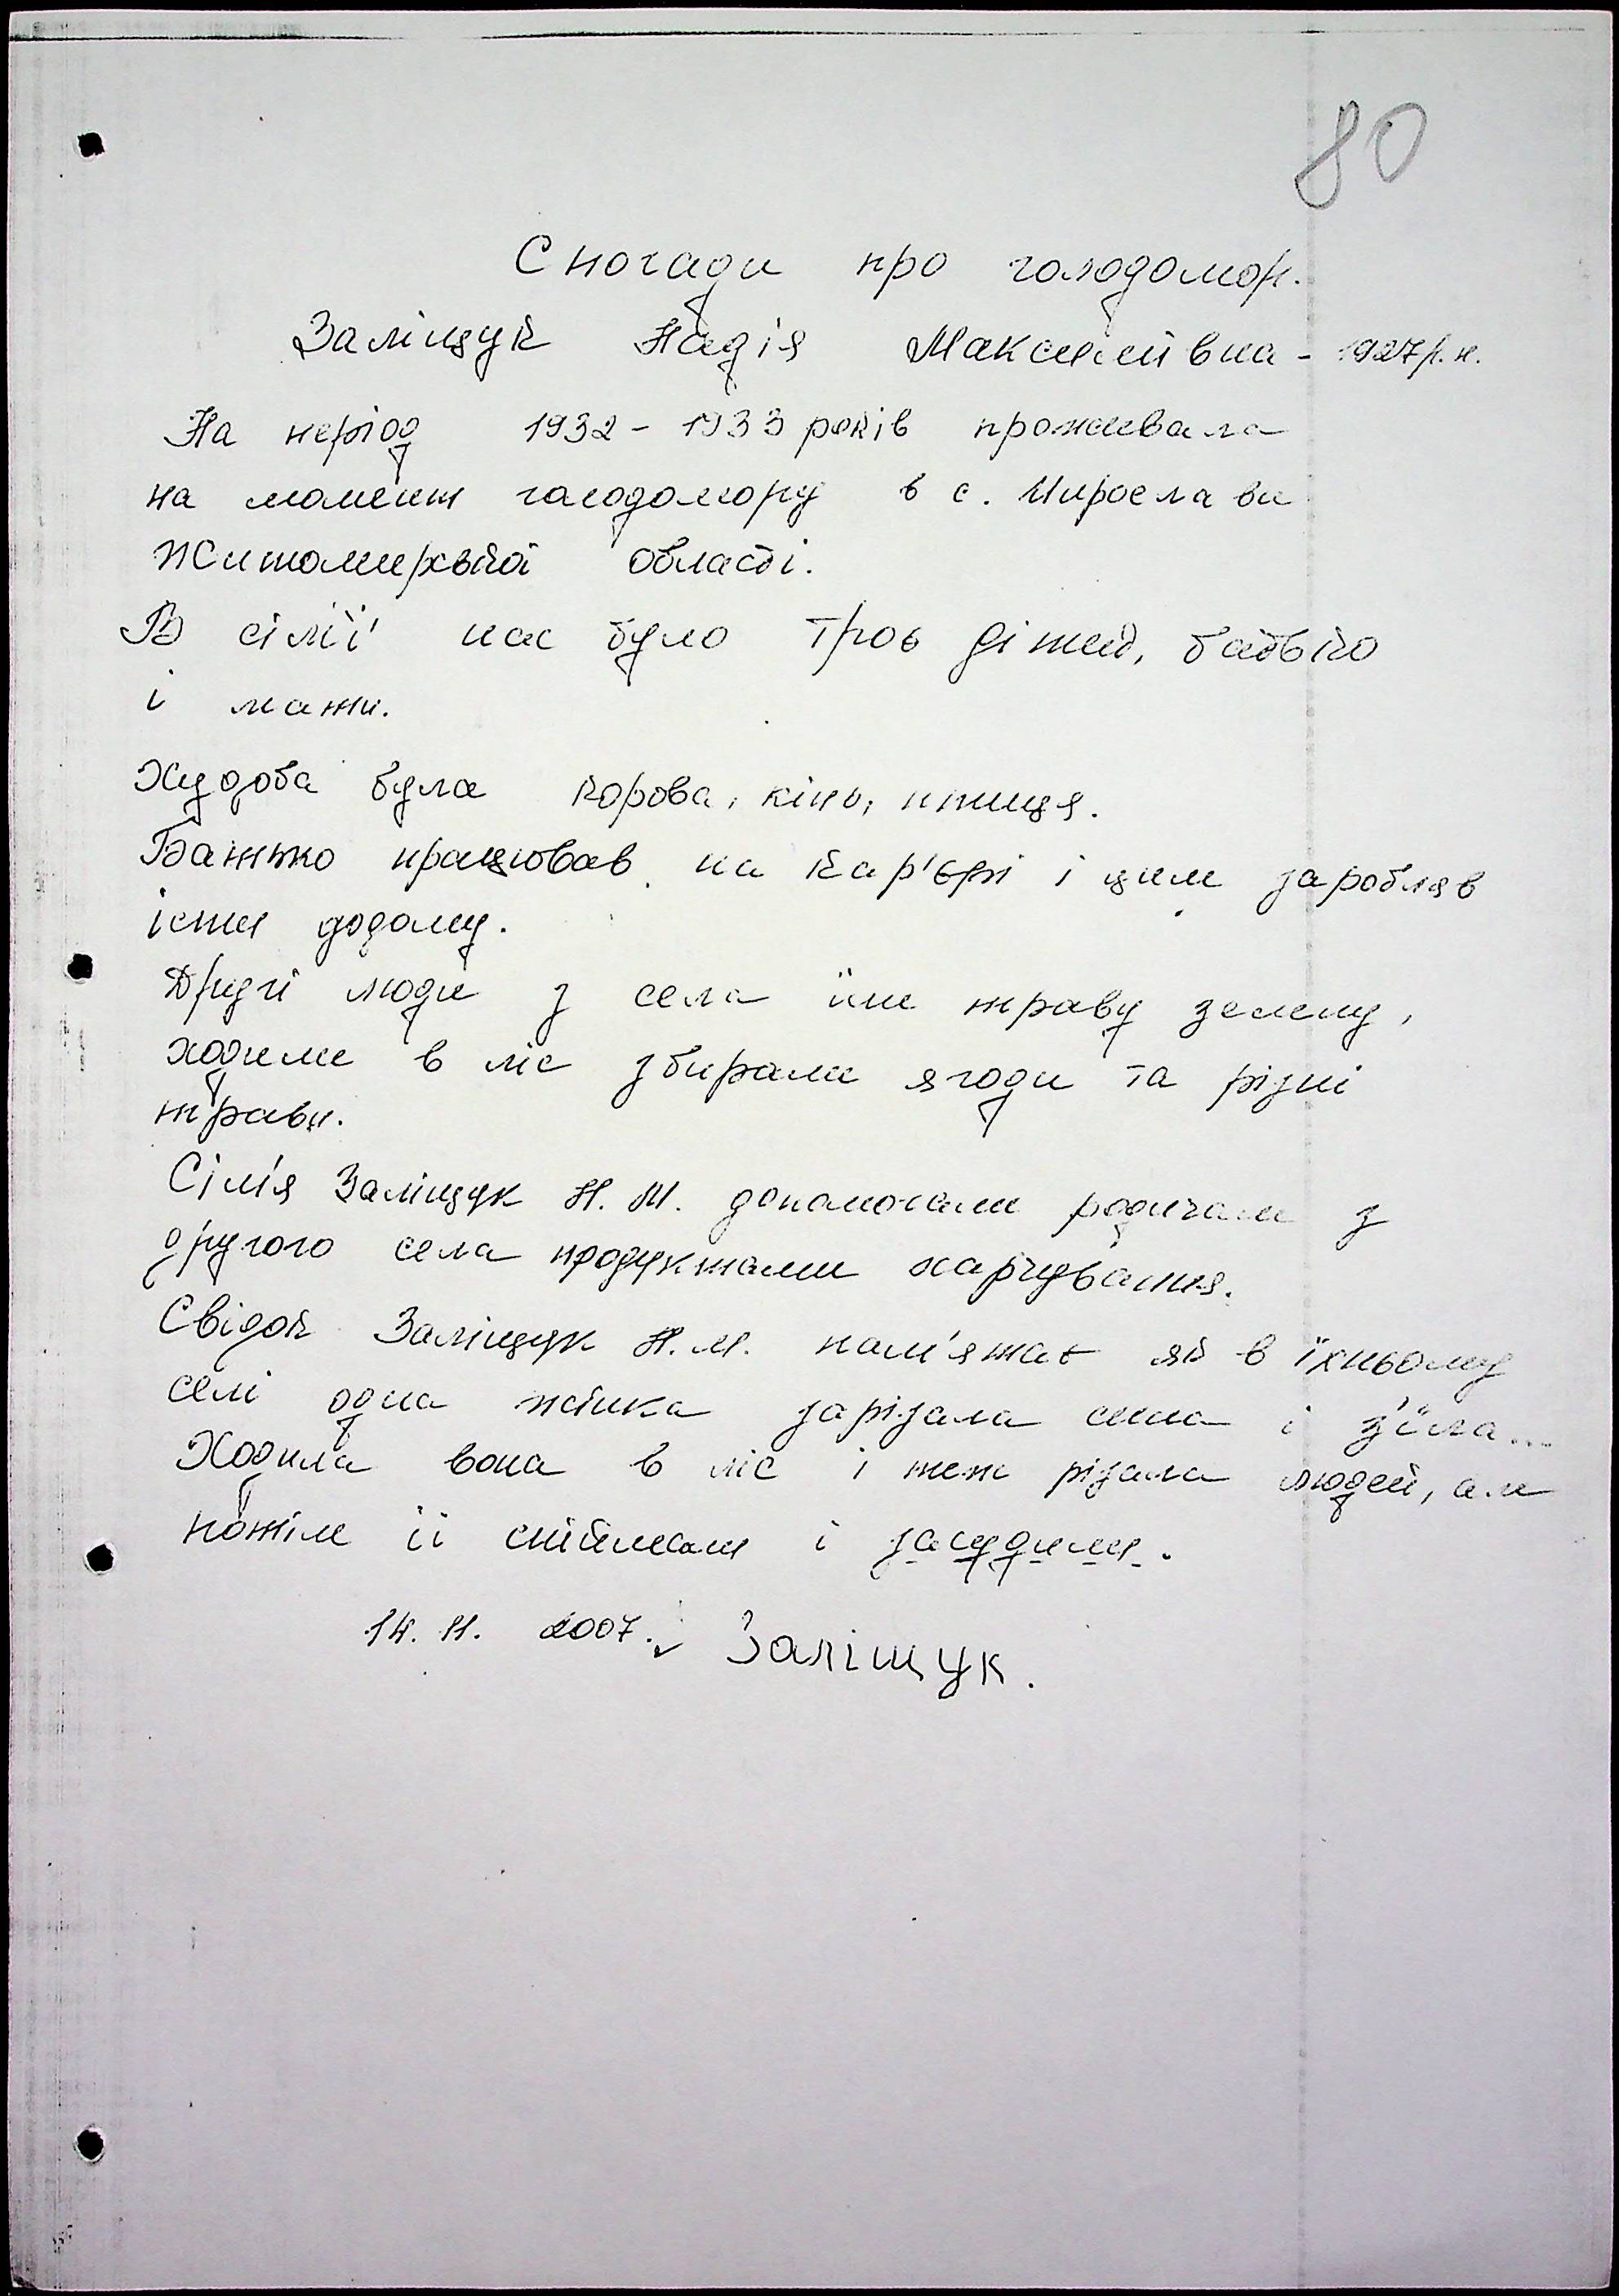 80
Спогади про голодомор.
Заліщук Надія Максимівна - 1927 р.н.
На період 1932 - 1933 років проживала
на момент голодомору в с. Мирослави
Житомирської області.
В сім'ї нас було троє дітей, батько
і мати.
Худоба була корова, кінь, птиця.
Батько працював на кар'єрі і цим заробляв
їсти додому.
Другі люди з села їли траву зелену,
ходили в ліс збирали ягоди та різні
трави.
Сім'я Заліщук Н. М. допомогали родичам з
другого села продуктами харчування.
Свідок Заліщук Н.М. пам'ятає як в їхньому
селі одна жінка зарізала сина і з'їла...
Ходила вона в ліс і теж різала людей, але
потім її спіймали і засудили.
14. 11. 2007. Заліщук.